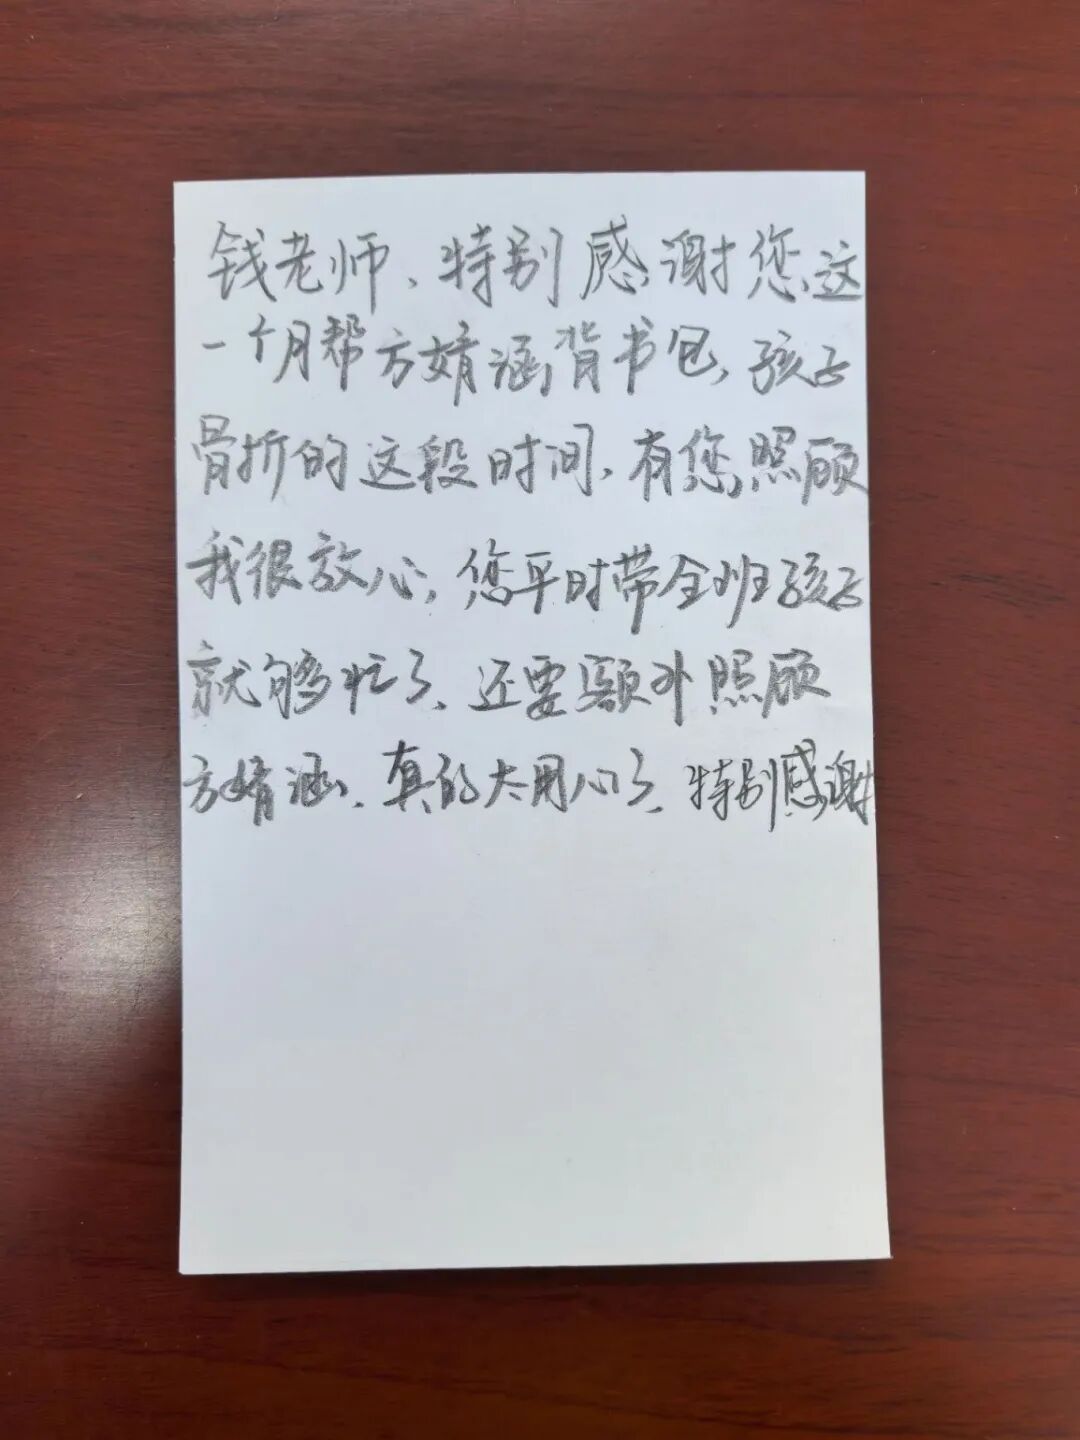 钱老师、特别感谢您这
一个月帮方婧涵背书包,孩子
骨折的这段时间,有您照顾
我很放心,您平时带全班孩子
就够忙了、还要额外照顾
方婧涵、真的太用心了、特别感谢